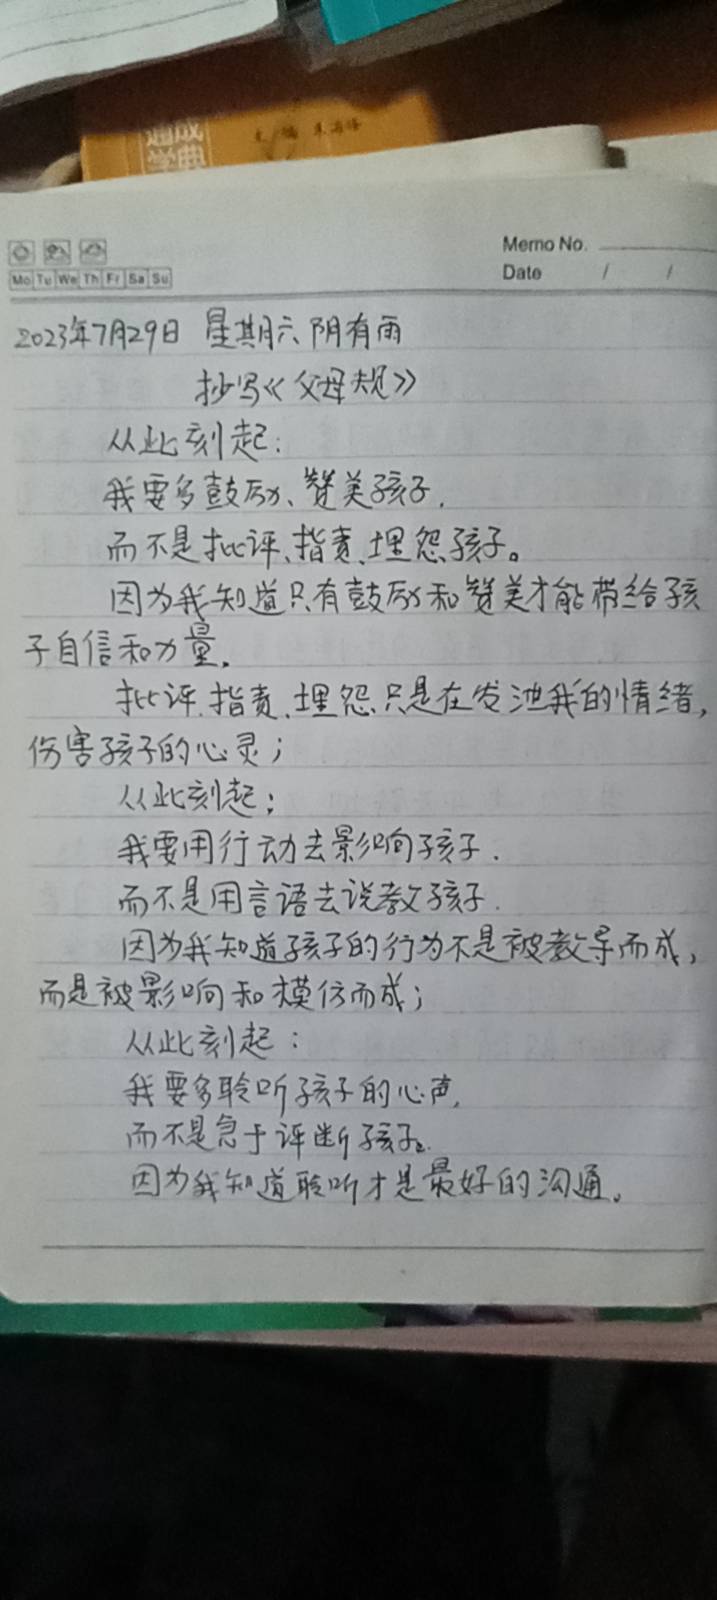 通成
学典
主编 朱海峰
Memo No.
Mo Tu We Th Fr Sa Su
Date / /
2023年7月29日 星期六 阴有雨
抄写《父母规》
从此刻起:
我要多鼓励、赞美孩子.
而不是批评、指责、埋怨孩子。
因为我知道只有鼓励和赞美才能带给孩
子自信和力量。
批评、指责、埋怨只是在发池我的情绪,
伤害孩子的心灵;
从此刻起;
我要用行动去影响孩子.
而不是用言语去说教孩子.
因为我知道孩子的行为不是被教导而成,
而是被影响和模仿而成;
从此刻起:
我要多聆听孩子的心声,
而不是急于评断孩子。
因为我知道聆听才是最好的沟通。